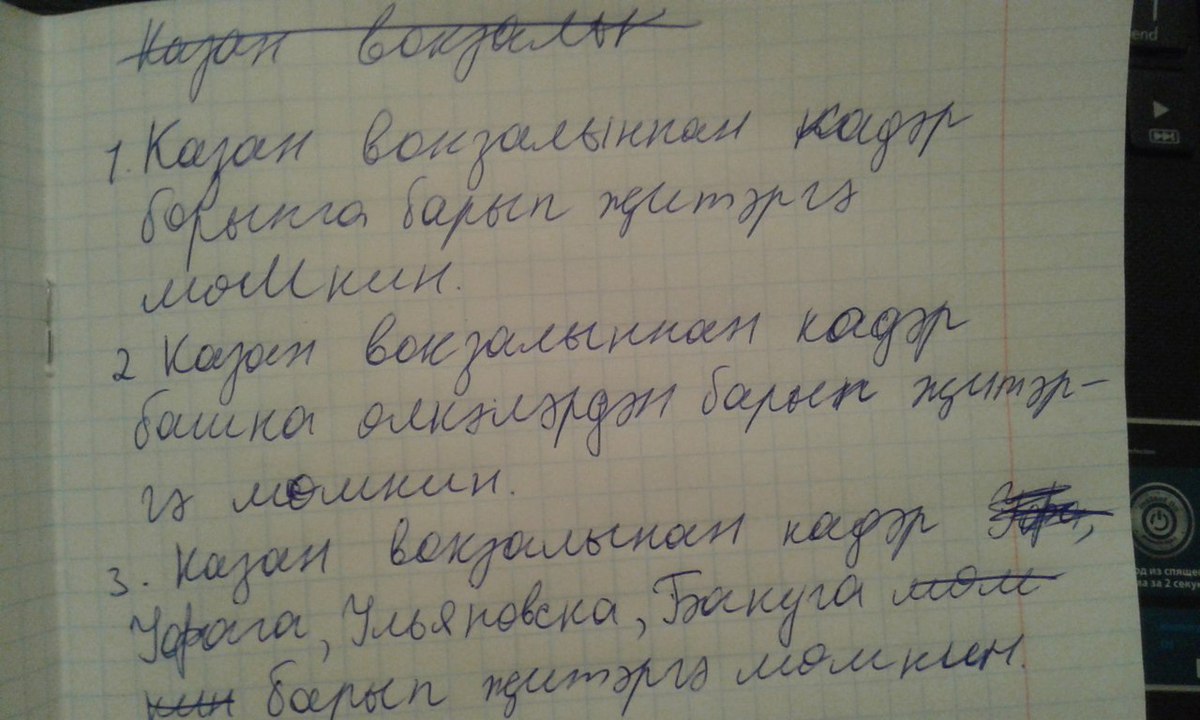 Казан вокзалы
1. Казан вокзалыннан кадәр
борынга барып җитәргә
мөмкин.
2 Казан вокзалыннан кадәр
башка өлкәләрдән барып җитәр-
гә мөмкин.
3. Казан вокзалынан кадәр
Уфага, Ульяновска, Бакуга мөм
кин барып җитәргә мөмкин.
end